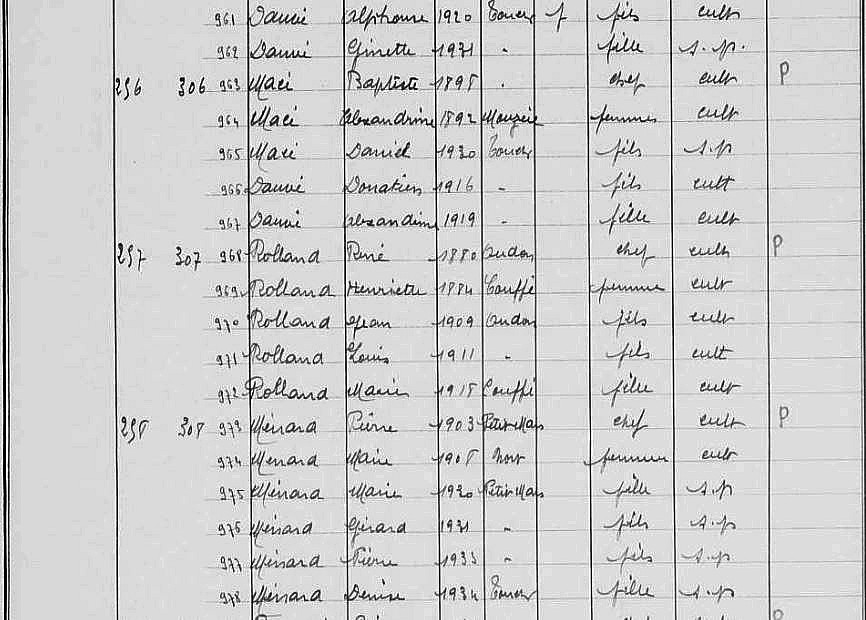 961 Dauvé Alphonse 1920 Toucs f fils cult
962 Dauvé Ginette 1931 " fille s.p.
296 306 963 Macé Baptiste 1898 " chef cult P
964 Macé Alexandrine 1892 Mouzeil femme cult
965 Macé Daniel 1930 fils s.p
966 Dauvé Donatien 1916 " fils cult
967 Dauvé Alexandrine 1919 " fille cult
297 307 968 Rolland René 1880 Oudon chef cult P
969 Rolland Henriette 1884 Couffé femme cult
970 Rolland Jean 1909 Oudon fils cult
971 Rolland Louis 1911 " fils cult
972 Rolland Marie 1915 Couffé fille cult
298 308 973 Ménard Pierre 1903 Petit Mars chef cult P
974 Ménard Marie 1908 Nort femme cult
975 Ménard Marie 1930 Petit Mars fille s.p
976 Ménard Gérard 1931 " fils s.p
977 Ménard Pierre 1933 " fils s.p
978 Ménard Denise 1934 fille s.p